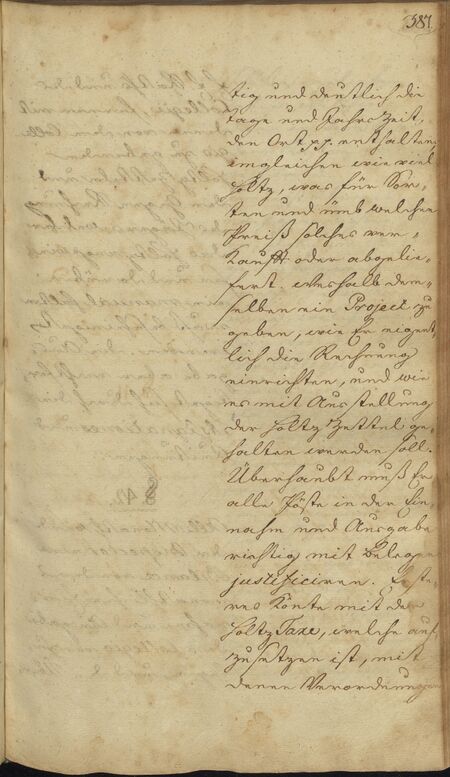 387.
tig und deutlich die
tage und Jahrs Zeit,
den Ort pp. enthalten,
imgleichen wie viel
Holtz, was für Sor-
ten und umb welchen
Preiß solches ver-
Kaufft oder abgelie-
fert. Weshalb dem-
selben ein Project zu
geben, wie Er eigent
lich die Rechnung
einrichten, und wie
es mit Ausstellung
der Holtz Zettel ge-
halten werden soll.
Überhaubt muß Er
alle Pöste in der Ein-
nahm und Ausgabe
richtig mit Belegen
justificiren. Erste-
res Könte mit der
Holtz Taxe, welche auf
zusetzen ist, mit
denen Verordnungen